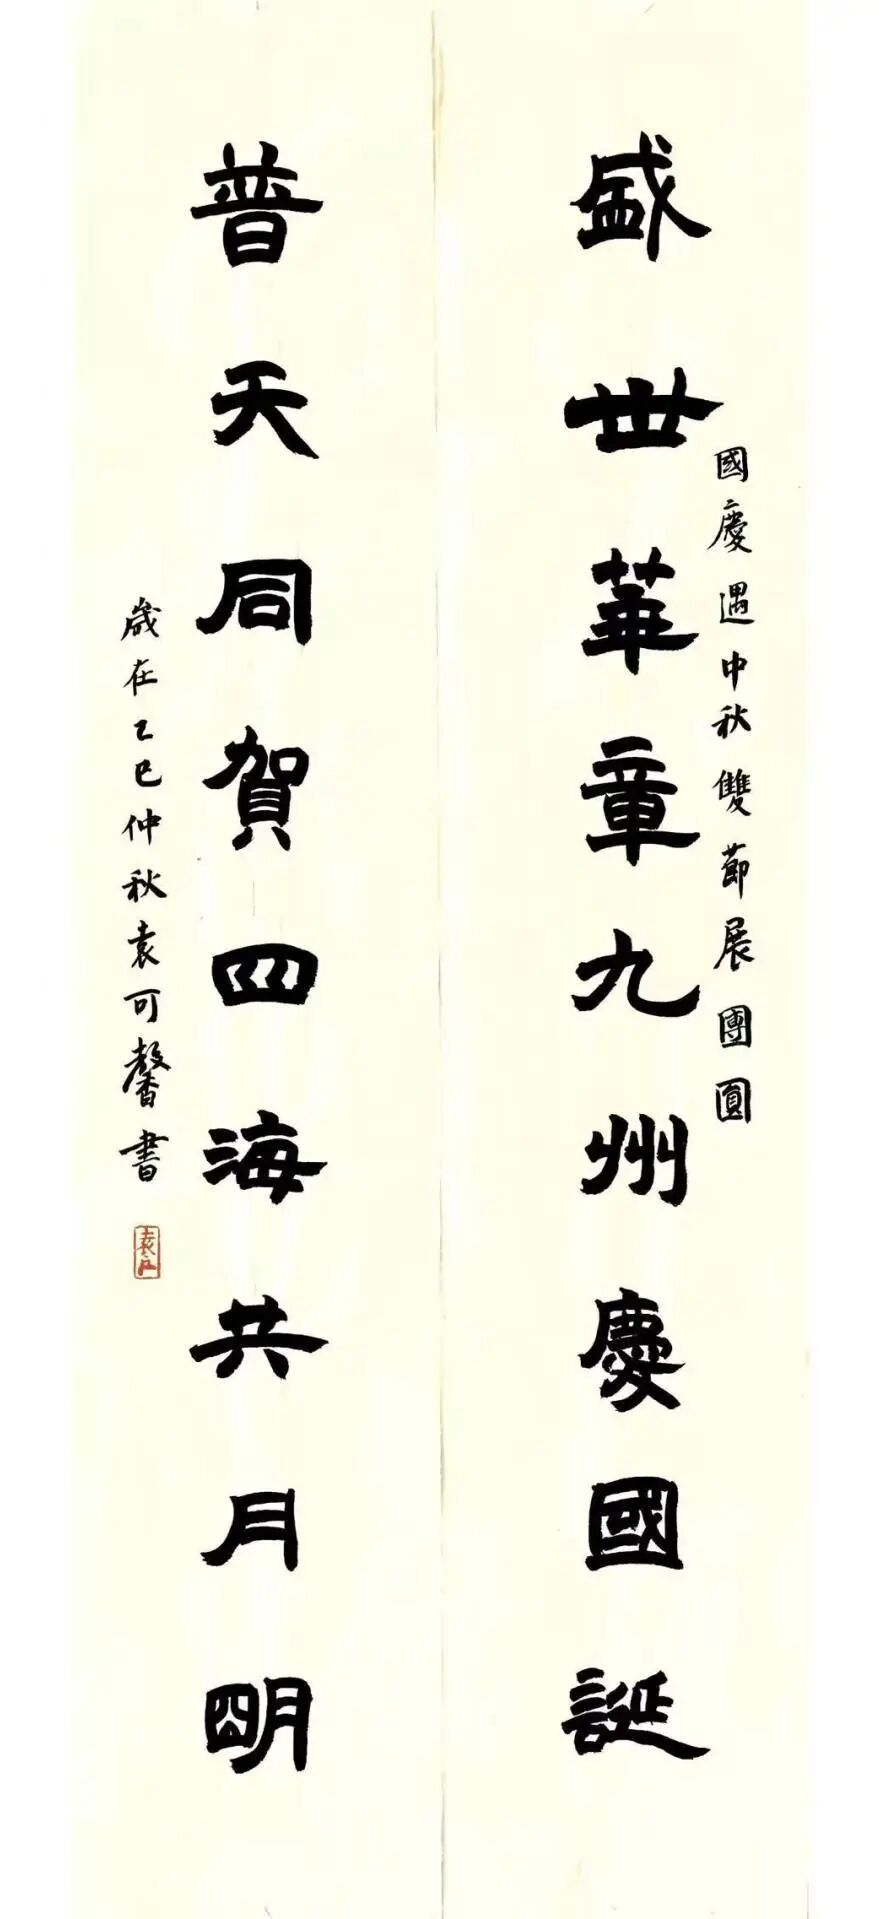 盛世華章九州慶國誕
國慶遇中秋雙節展團圓
普天同賀四海共月明
歲在乙巳仲秋袁可馨書